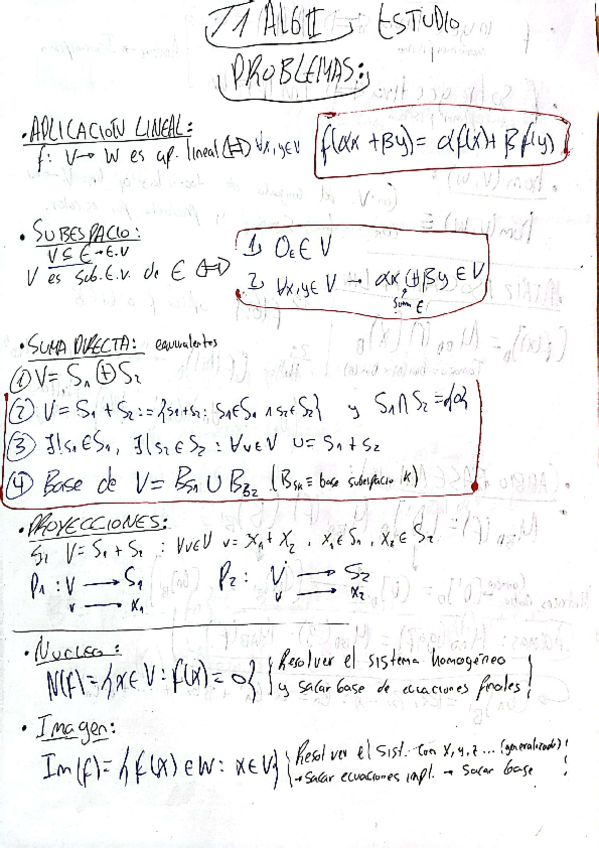 T1 ALG II ESTUDIO
PROBLEMAS:
• APLICACION LINEAL:
f: V → W es ap. lineal ⟺ ∀x,y∈V f(αx + βy) = αf(x) + βf(y)
• SUBESPACIO:
V ⊆ E → E.V
V es sub.E.V. de E ⟺
1) 0_E ∈ V
2) ∀x,y∈V → αx (+) βy ∈ V
suma E
• SUMA DIRECTA: equivalentes
① V = S₁ ⊕ S₂
② V = S₁ + S₂ := {s₁+s₂ : s₁∈S₁ ∧ s₂∈S₂} y S₁∩S₂ = {0}
③ ∃!s₁∈S₁, ∃!s₂∈S₂ : ∀v∈V v = s₁+s₂
④ Base de V = B_S₁ ∪ B_B₂ (B_SK ≡ base subespacio K)
• PROYECCIONES:
Si V = S₁ + S₂ : ∀v∈V v = x₁ + x₂ , x₁∈S₁ , x₂∈S₂
P₁ : V → S₁ P₂ : V → S₂
v → x₁ v → x₂
• Nucleo:
N(f) = {x∈V : f(x) = 0} { Resolver el sistema homogéneo
y sacar base de ecuaciones finales }
• Imagen:
Im(f) = {f(x)∈W : x∈V} { Resolver el sist. con x,y,z... (generalizado)
→ sacar ecuaciones impl. → sacar base